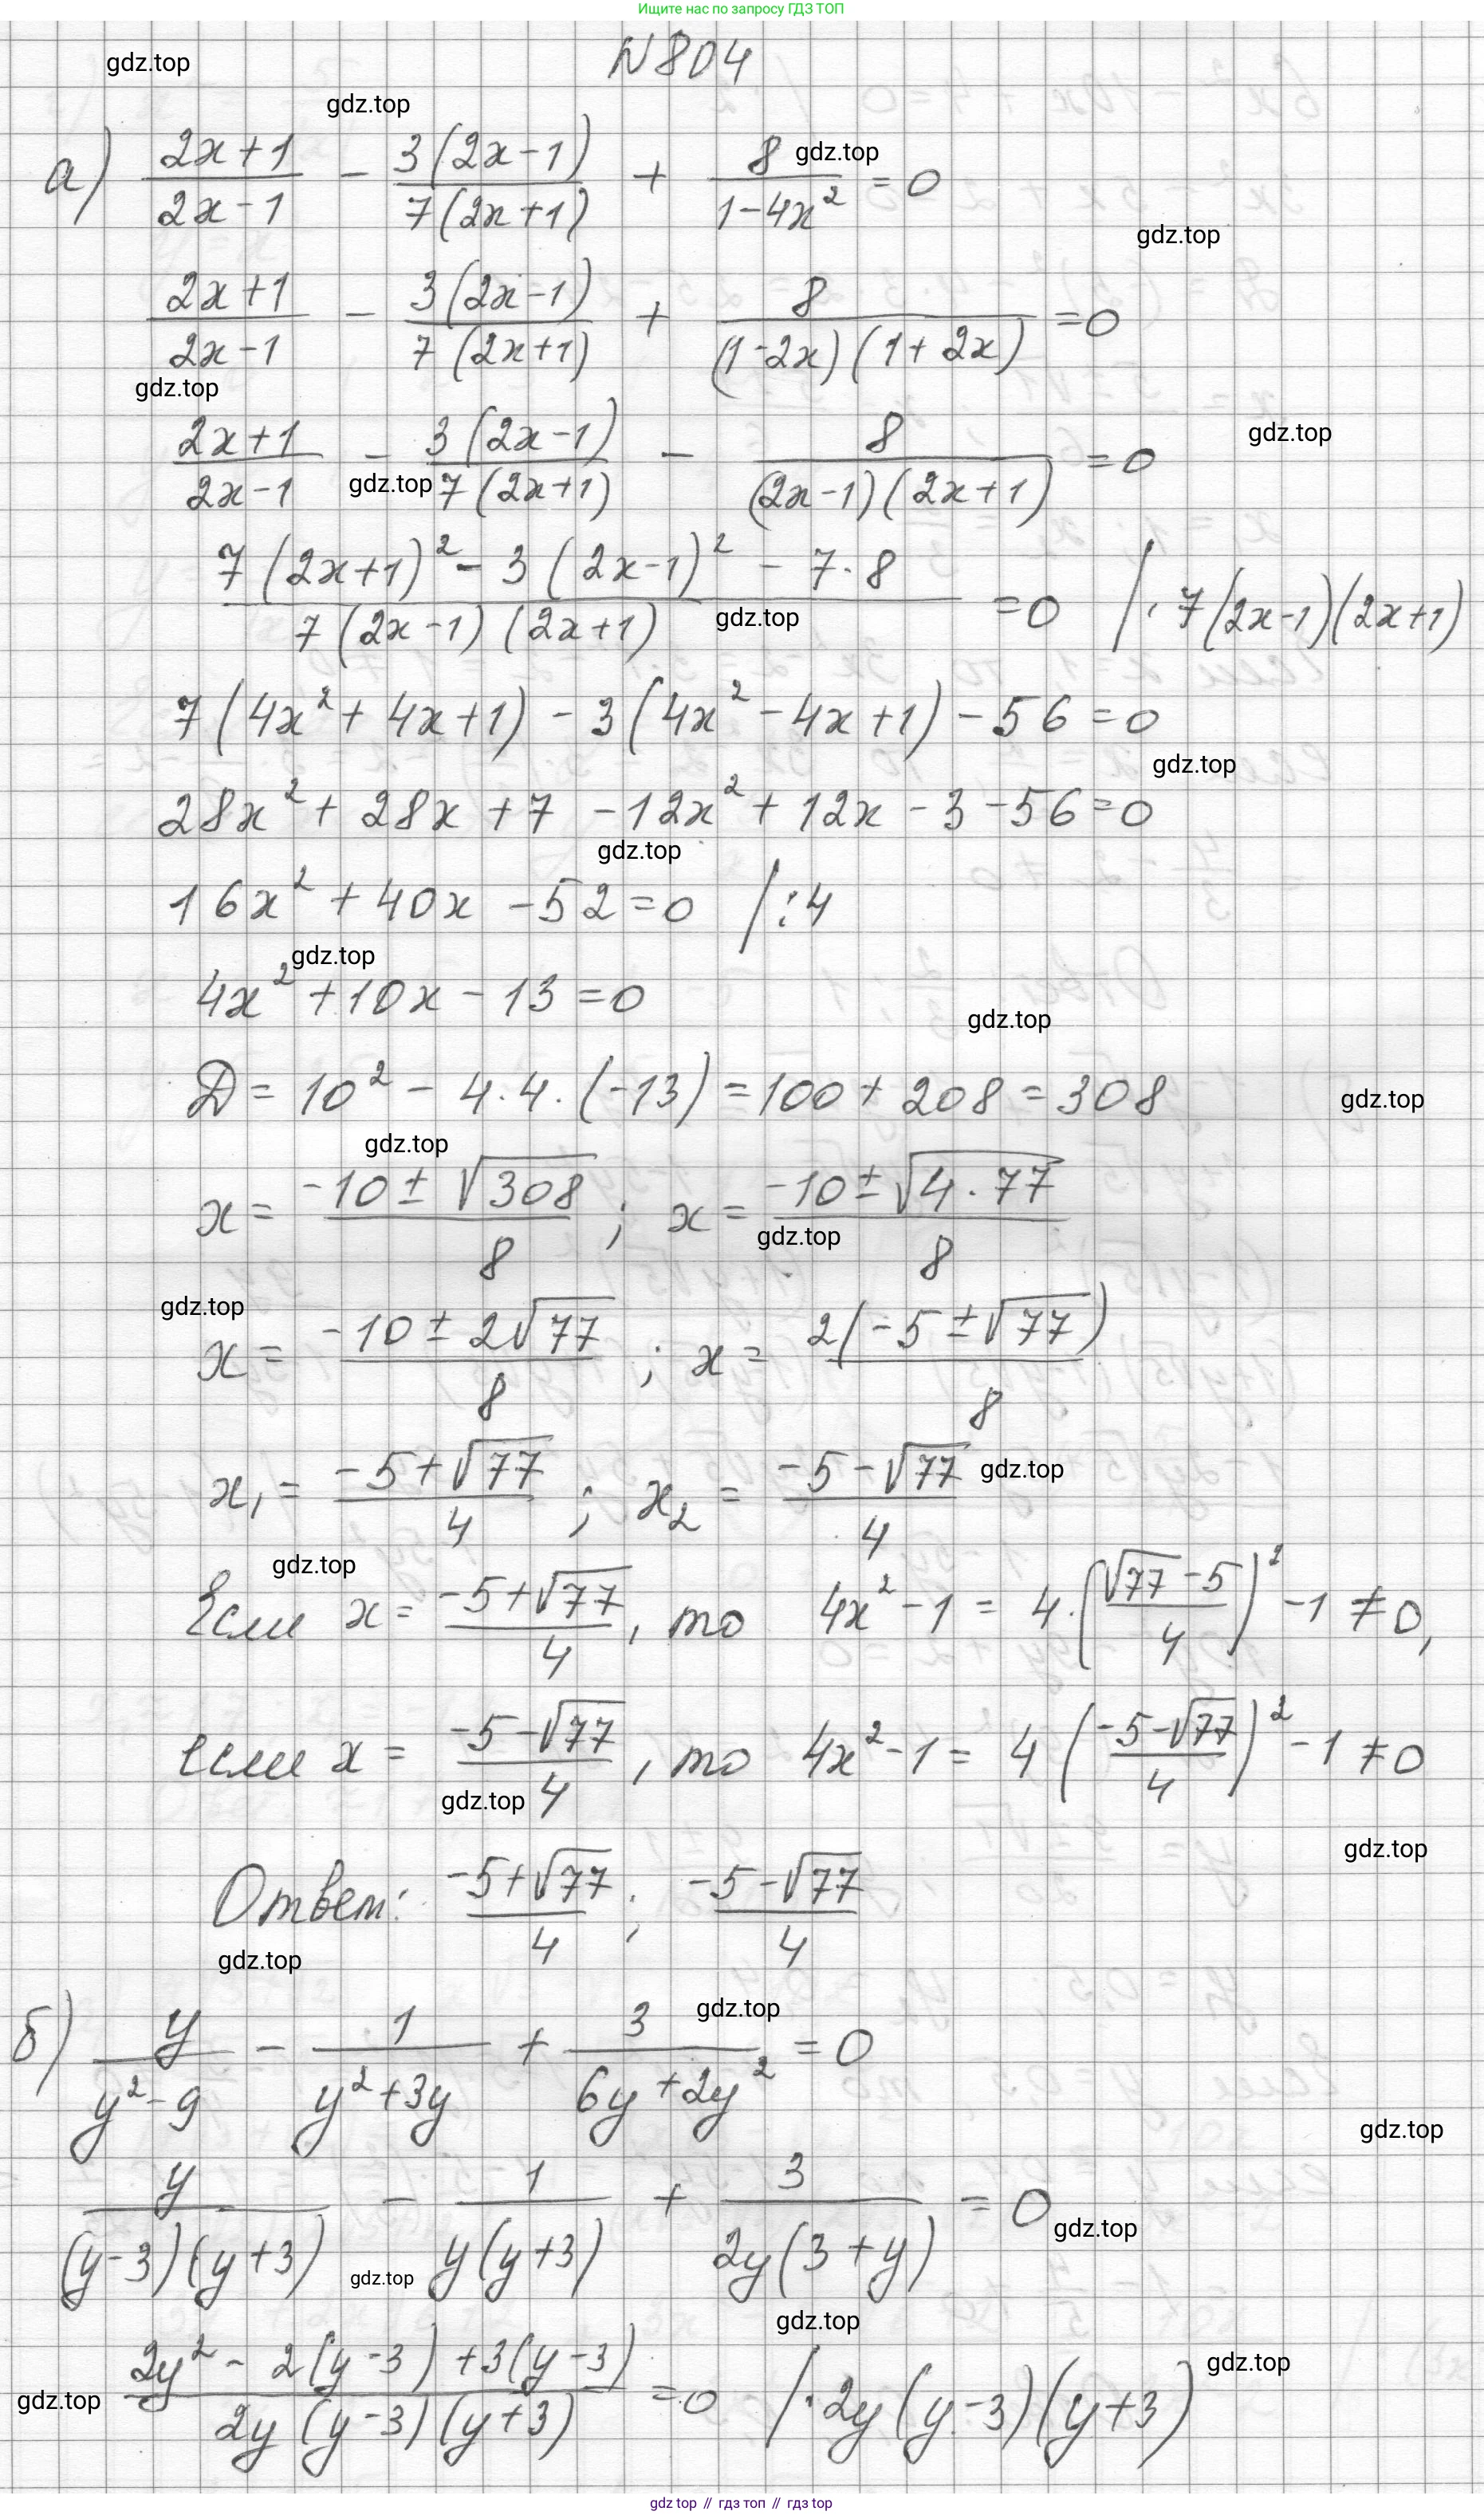 Ищите нас по запросу ГДЗ ТОП
N 804
gdz.top
gdz.top
а) (2x+1)/(2x-1) - 3(2x-1)/(7(2x+1)) + 8/(1-4x²) = 0
gdz.top
gdz.top
(2x+1)/(2x-1) - 3(2x-1)/(7(2x+1)) + 8/((1-2x)(1+2x)) = 0
gdz.top
gdz.top
(2x+1)/(2x-1) - 3(2x-1)/(7(2x+1)) - 8/((2x-1)(2x+1)) = 0
gdz.top
(7(2x+1)² - 3(2x-1)² - 7·8)/(7(2x-1)(2x+1)) = 0 /·7(2x-1)(2x+1)
gdz.top
7(4x²+4x+1) - 3(4x²-4x+1) - 56 = 0
gdz.top
28x² + 28x + 7 - 12x² + 12x - 3 - 56 = 0
gdz.top
16x² + 40x - 52 = 0 /:4
gdz.top
4x² + 10x - 13 = 0
gdz.top
D = 10² - 4·4·(-13) = 100 + 208 = 308
gdz.top
gdz.top
x = (-10±√308)/8 ; x = (-10±√(4·77))/8
gdz.top
gdz.top
x = (-10±2√77)/8 ; x = 2(-5±√77)/8
x₁ = (-5+√77)/4 ; x₂ = (-5-√77)/4
gdz.top
gdz.top
Если x = (-5+√77)/4, то 4x²-1 = 4·((√77-5)/4)² - 1 ≠ 0,
если x = (-5-√77)/4, то 4x²-1 = 4((-5-√77)/4)² - 1 ≠ 0
gdz.top
gdz.top
Ответ: (-5+√77)/4 ; (-5-√77)/4
gdz.top
gdz.top
б) y/(y²-9) - 1/(y²+3y) + 3/(6y+2y²) = 0
gdz.top
y/((y-3)(y+3)) - 1/(y(y+3)) + 3/(2y(3+y)) = 0
gdz.top
gdz.top
gdz.top
gdz.top
(2y² - 2(y-3) + 3(y-3))/(2y(y-3)(y+3)) = 0 /·2y(y-3)(y+3)
gdz.top
gdz top // гдз топ // гдз top